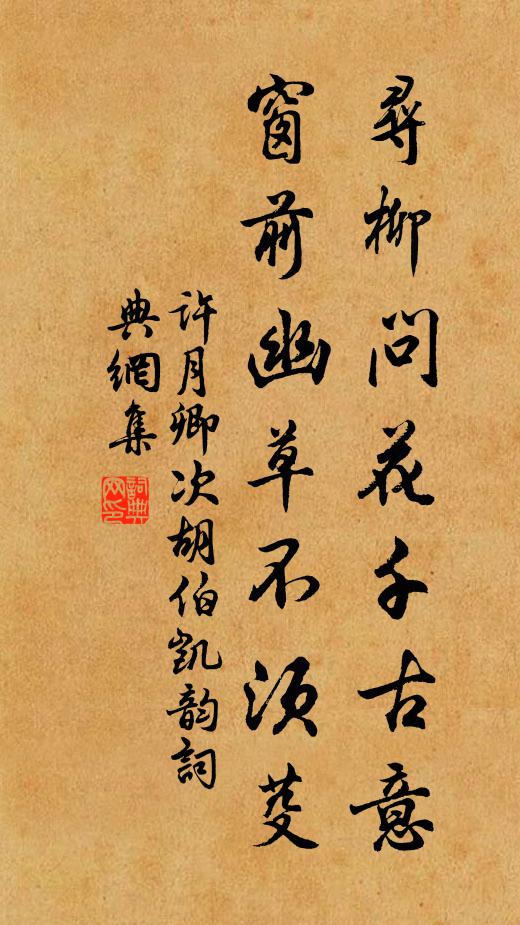 尋柳問花千古意
窗前幽草不須芟
許月卿次胡伯凱韵詞
典網集
詞典
网印